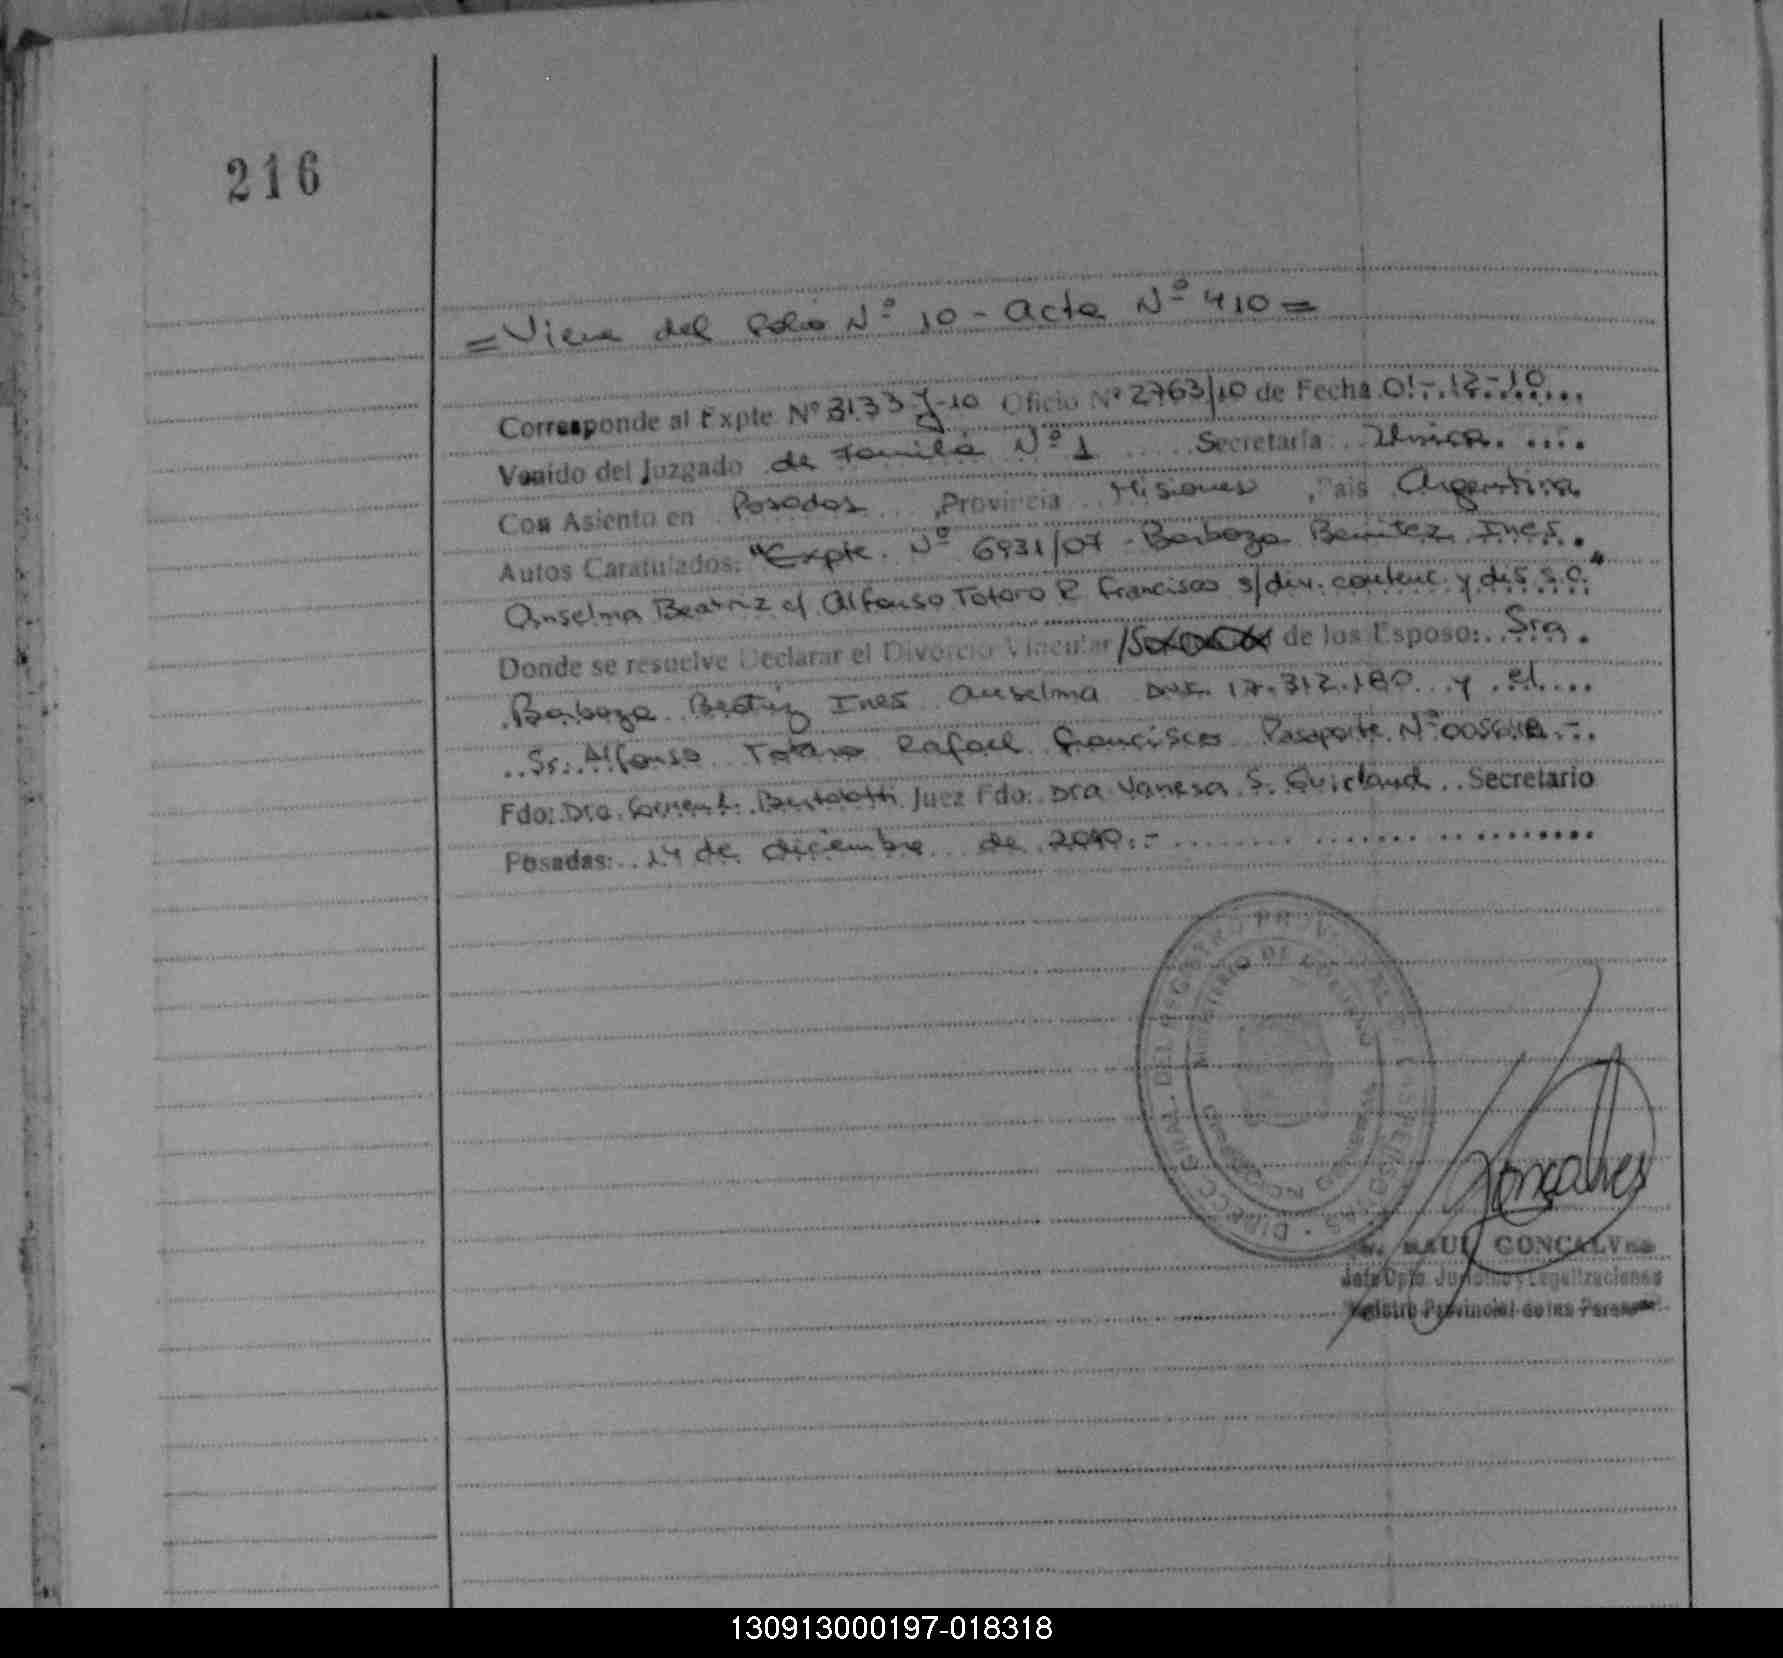 216
= Viene del folio Nº 10 - acta Nº 410 =
Corresponde al Expte Nº 3133 J-10 Oficio Nº 2763/10 de Fecha 01-12-10
Venido del Juzgado de Familia Nº 1 Secretaría: Unica
Con Asiento en Posadas, Provincia Misiones, País Argentina
Autos Caratulados: "Expte. Nº 6931/07 - Barboza Benitez Ines
Anselma Beatriz c/ Alfonso Totoro R Francisco s/div. contenc. y dis. s.c."
Donde se resuelve Declarar el Divorcio Vincular / de los Esposo: Sra.
Barboza Beatriz Ines Anselma DNI. 17.312.180 y el
Sr. Alfonso Totoro Rafael Francisco Pasaporte Nº
Fdo: Dra. Bertolotti Juez Fdo: Dra Vanesa S. Guirland Secretario
Posadas: 14 de diciembre de 2010.-
DIRECC. GRAL. DEL REGISTRO PROVINCIAL DE LAS PERSONAS
MINISTERIO DE GOBIERNO
Goncalves
RAUL GONCALVES
Jefe Dpto. Jurídico y Legalizaciones
Registro Provincial de las Personas
130913000197-018318